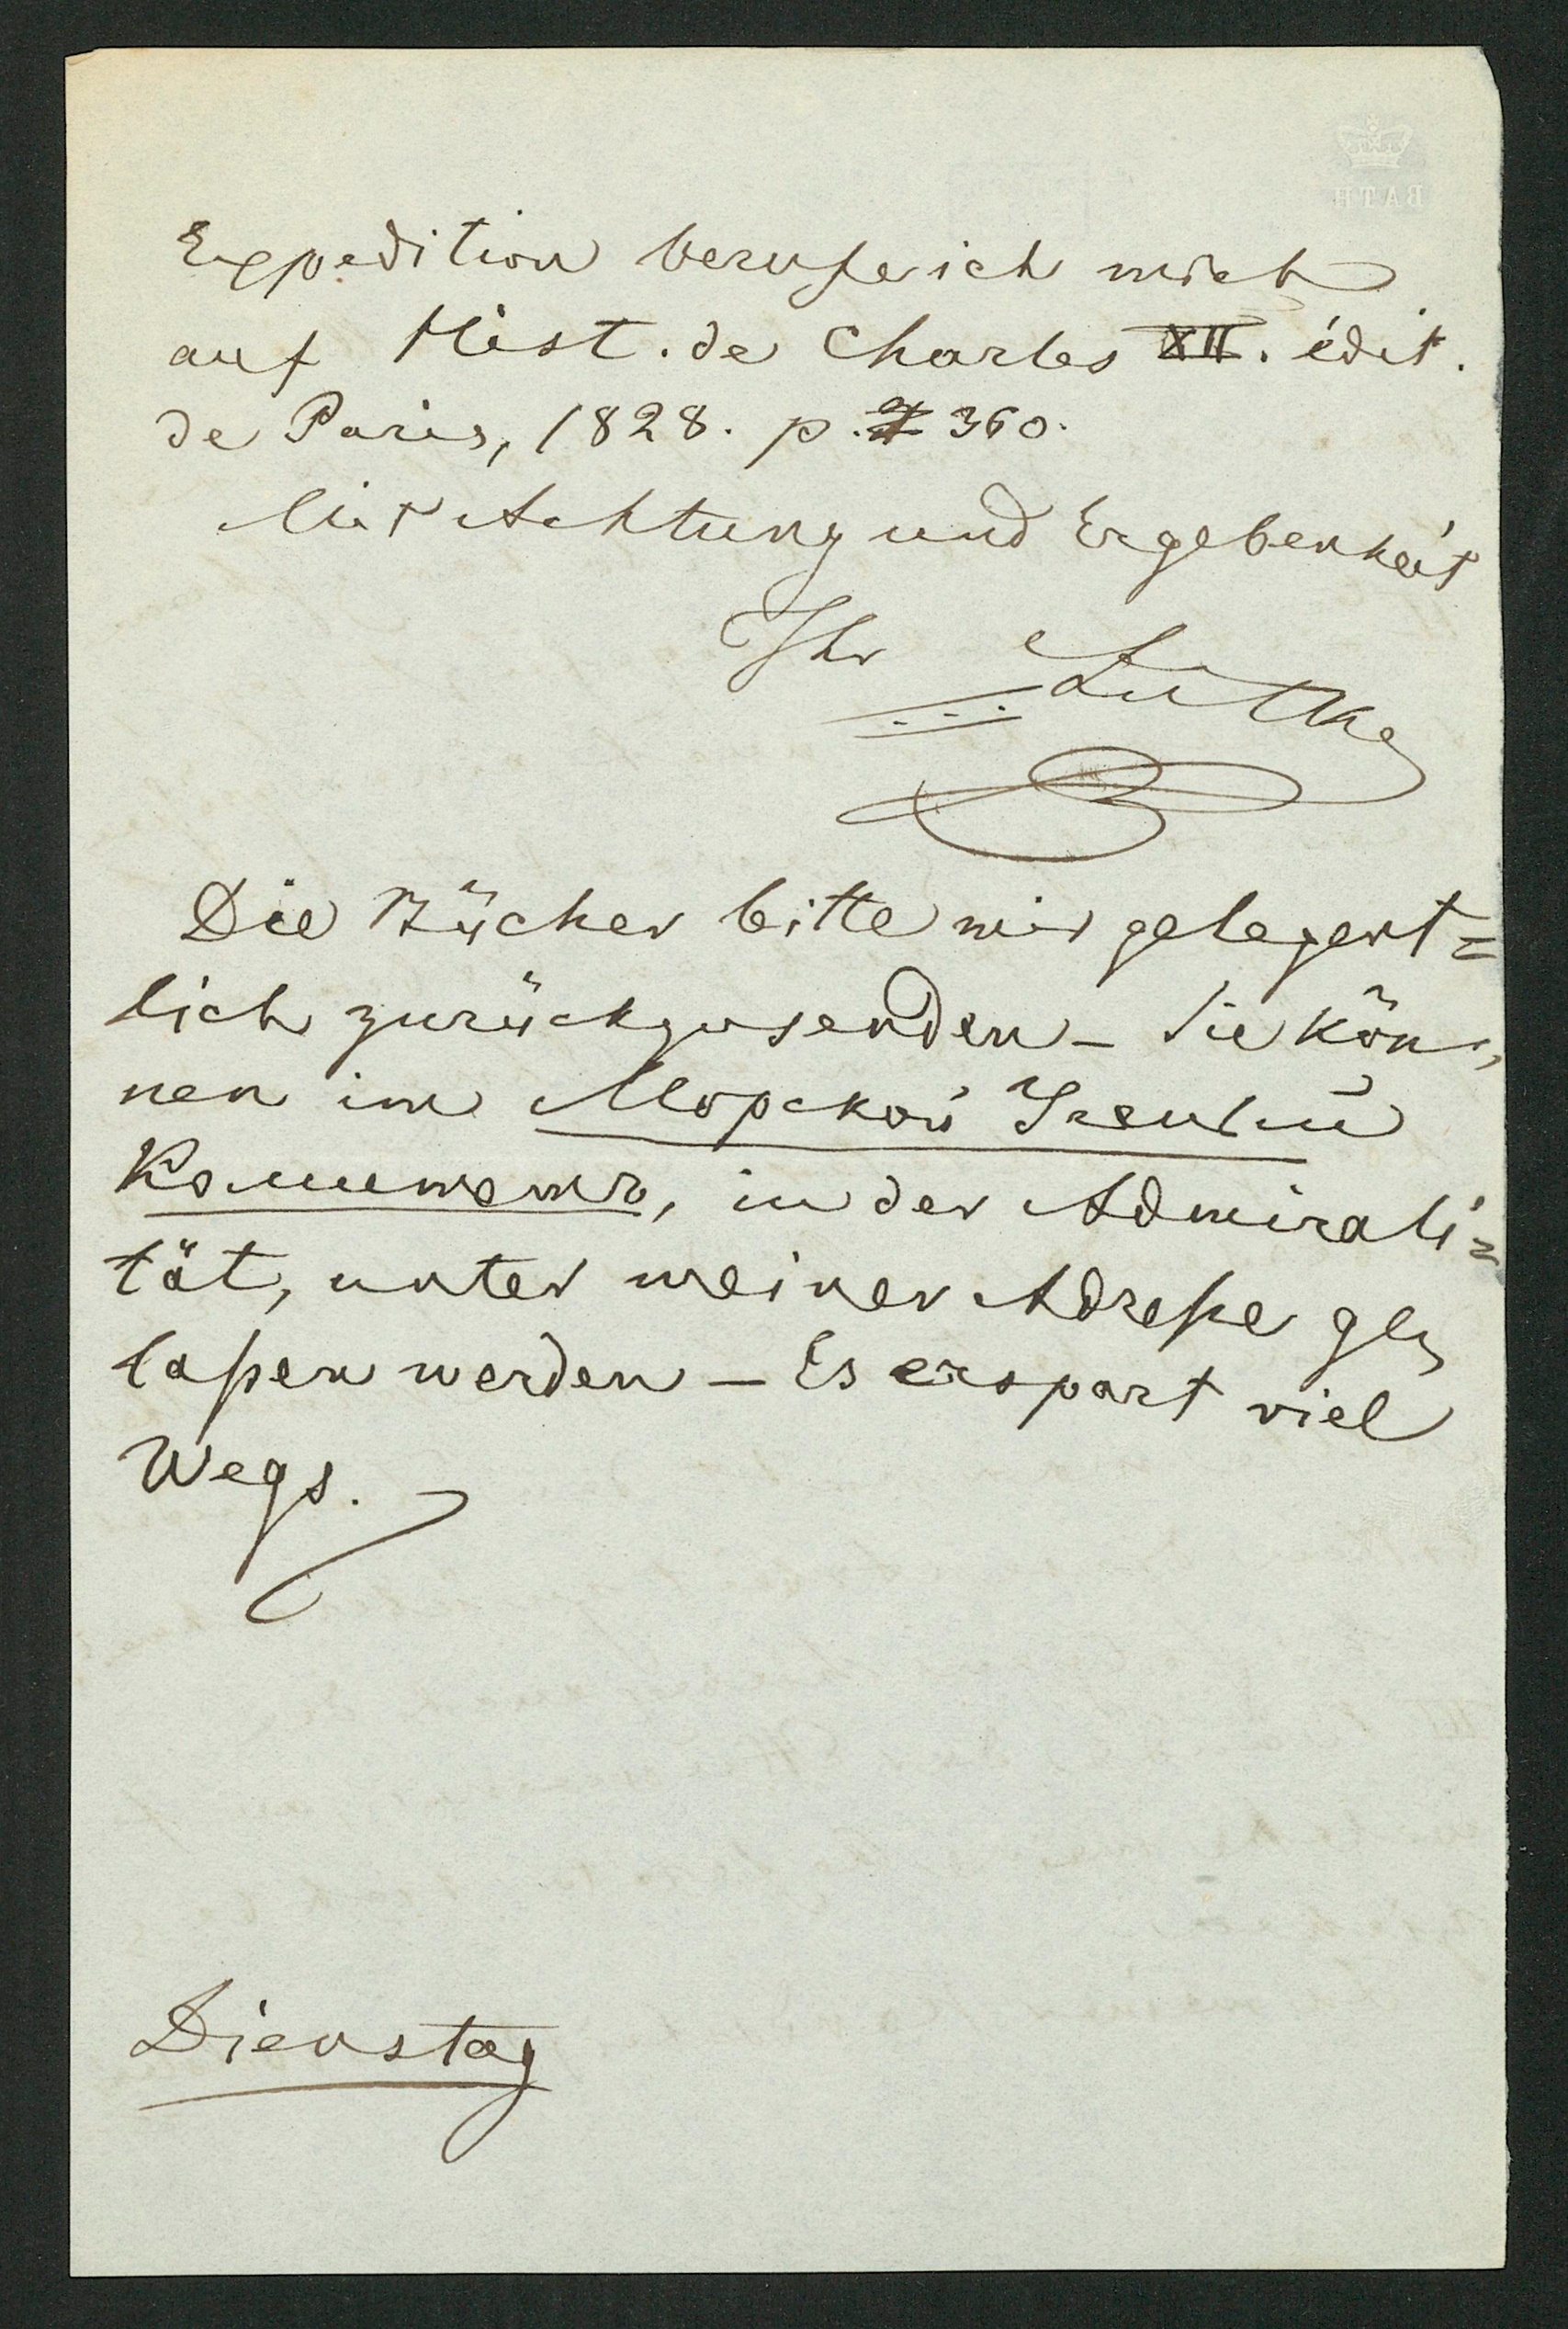 BATH
Expedition berufe ich mich
auf Hist. de Charles XII. édit.
de Paris, 1828. p. 360.
Mit Achtung und Ergebenheit
Ihr Lütke
Die Bücher bitte mir gelegent=
lich zurückzusenden – Sie kön-
nen im Морской Ученый
Комитетъ, in der Admirali=
tät, unter meiner Adreße ge-
laßen werden – Es erspart viel
Wegs.
Dienstag